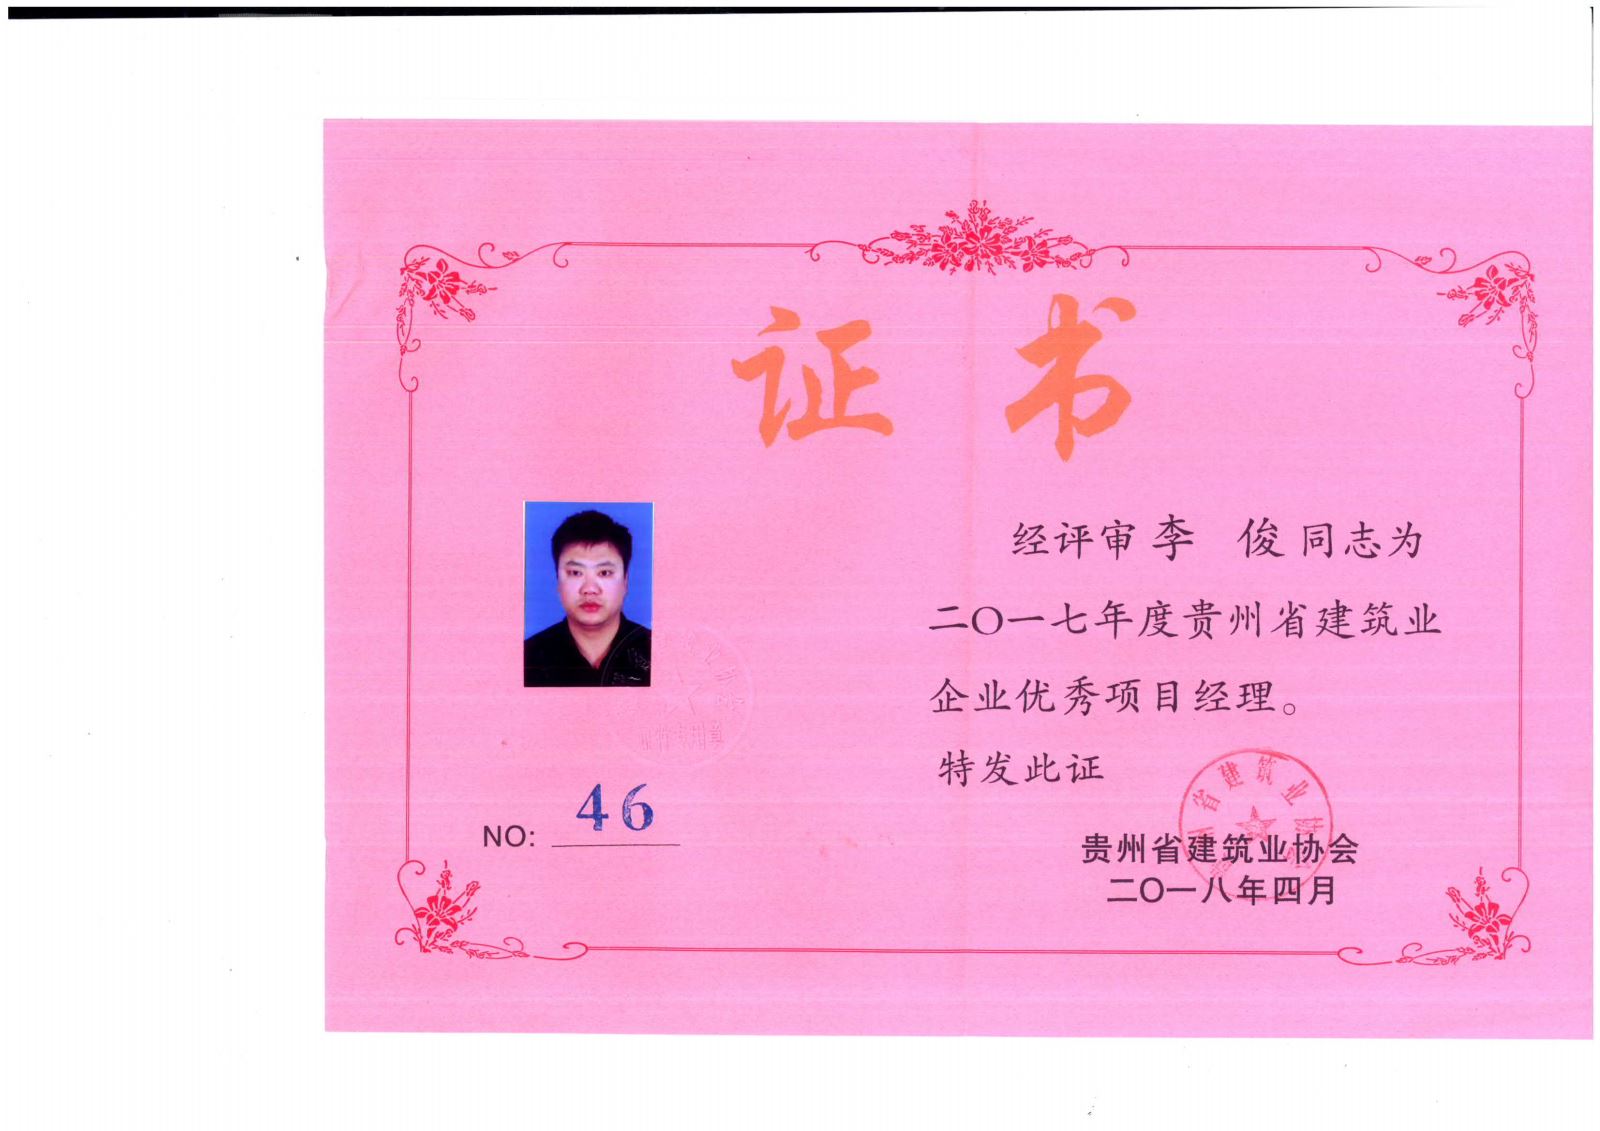 证书
经评审 李 俊 同志为
二〇一七年度贵州省建筑业
企业优秀项目经理。
特发此证
NO: 46
省建筑业
贵州省建筑业协会
二〇一八年四月